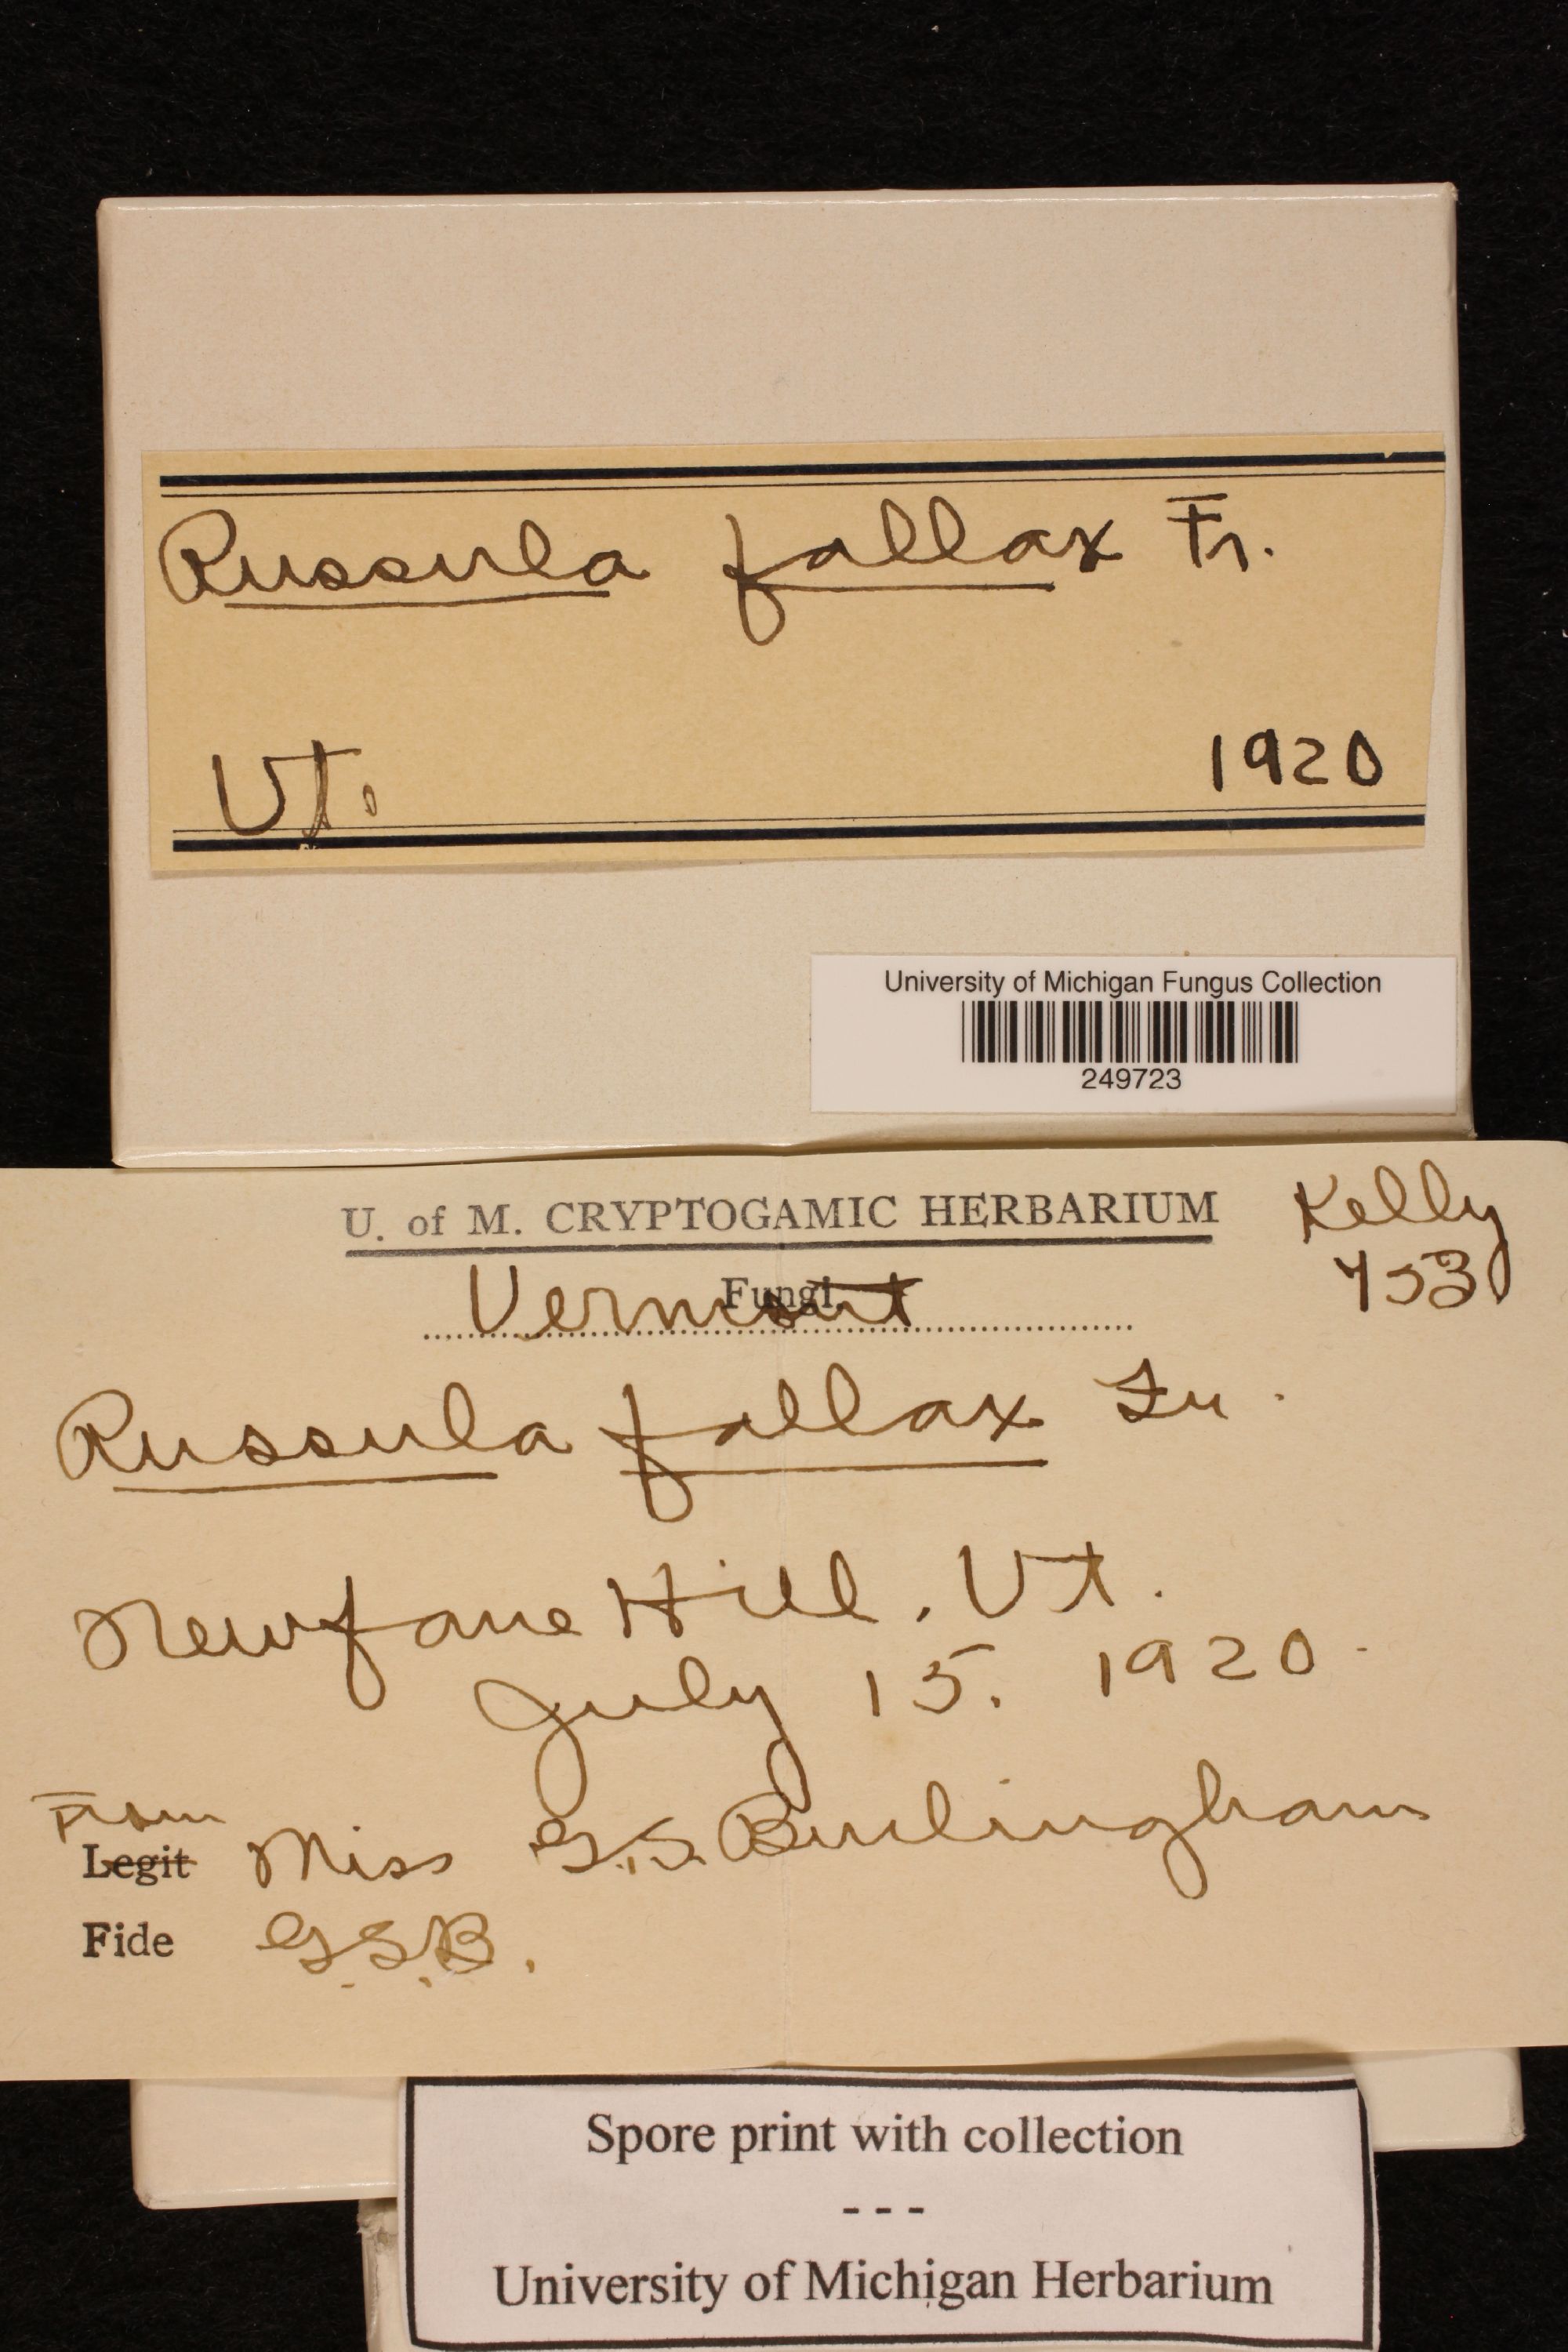 Russula fallax Fr.
Vt. 1920
University of Michigan Fungus Collection
249723
U. of M. CRYPTOGAMIC HERBARIUM
Kelly
753
Fungi
Vermont
Russula fallax Fr.
Newfane Hill, Vt.
July 15. 1920.
From
Legit Miss G.S. Burlingham
Fide G.S.B.
Spore print with collection
---
University of Michigan Herbarium